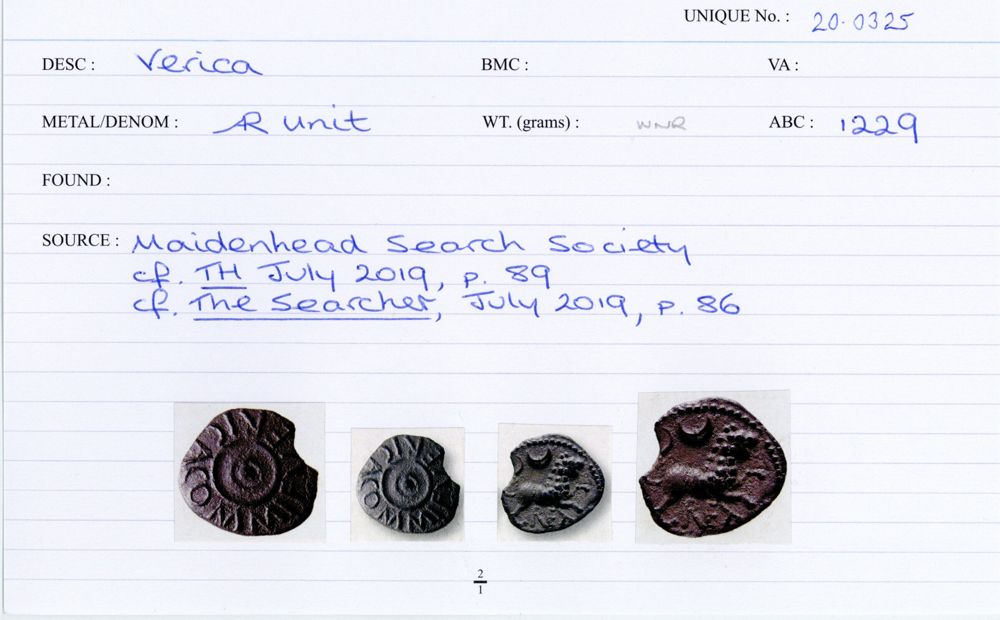 UNIQUE No. : 20.0325
DESC : Verica BMC : VA :
METAL/DENOM : AR unit WT. (grams) : WNR ABC : 1229
FOUND :
SOURCE : Maidenhead Search Society
cf. TH July 2019, p. 89
cf. The Searcher, July 2019, p. 86
2
1